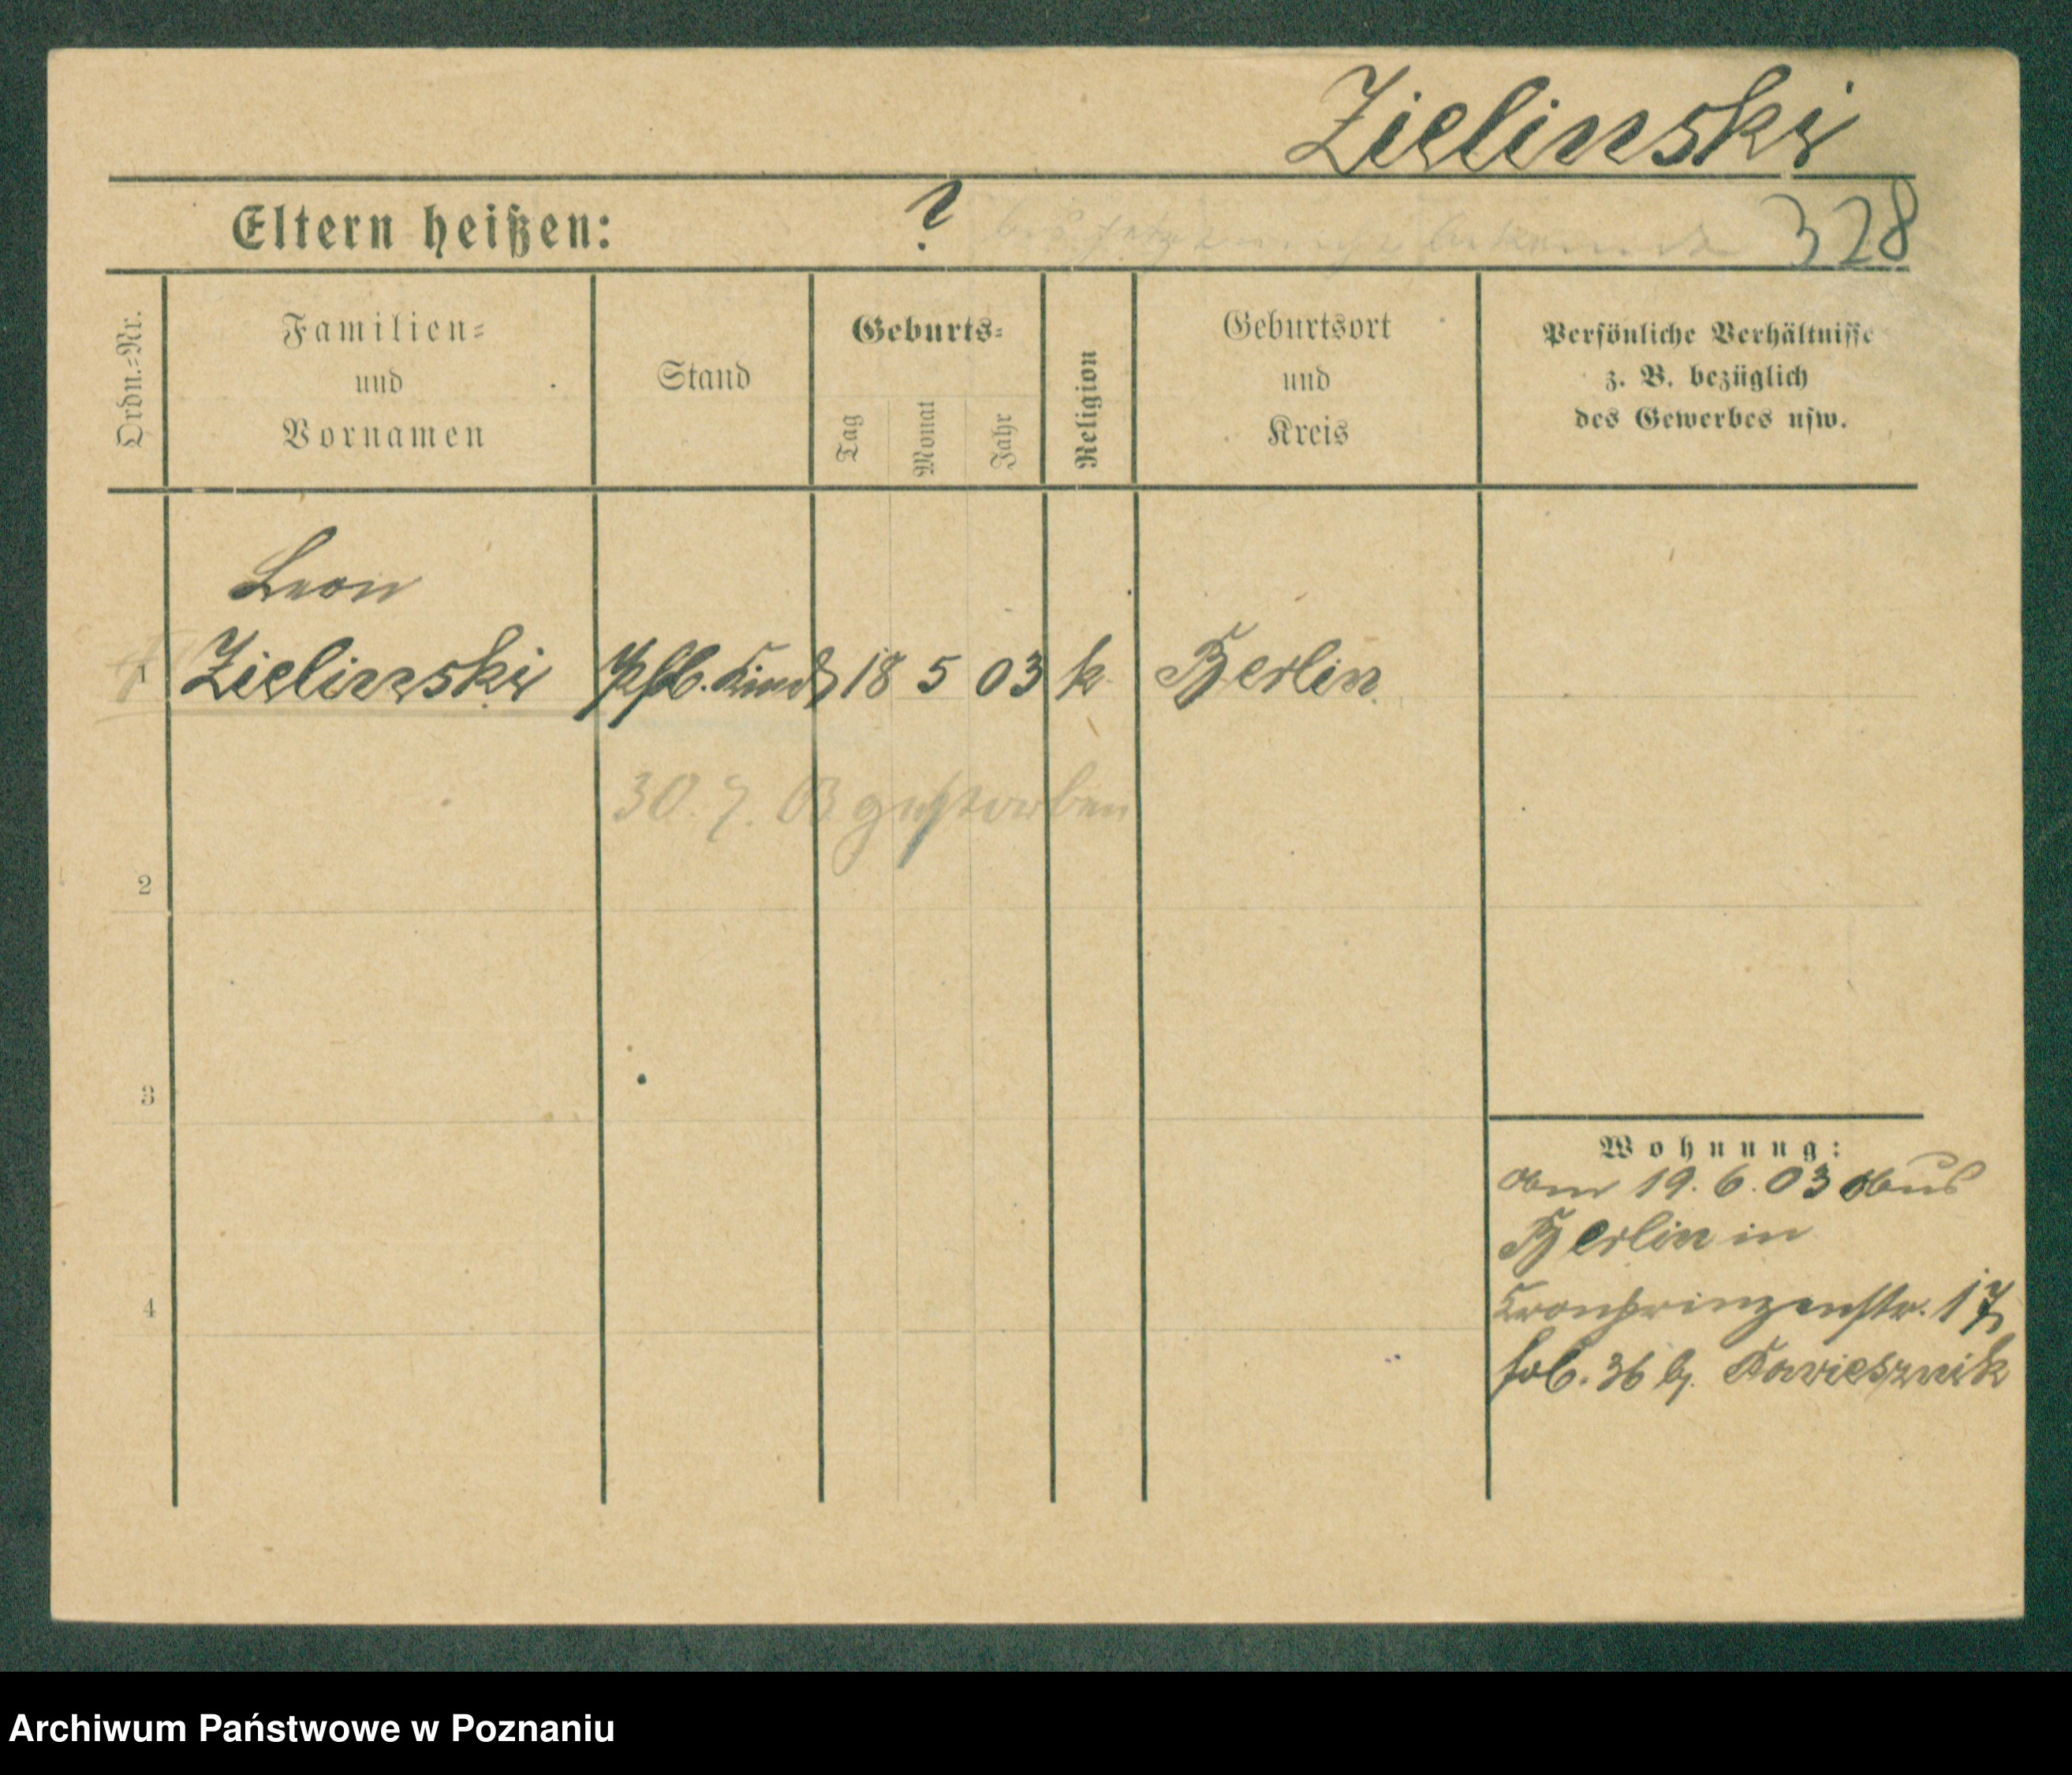 Zielinski
Eltern heißen: ? bis jetzt nicht bekannt 328
Ordn.=Nr.
Familien=
und
Vornamen
Stand
Geburts=
Tag
Monat
Jahr
Religion
Geburtsort
und
Kreis
Persönliche Verhältnisse
z. B. bezüglich
des Gewerbes usw.
Leon
1 Zielinski Pfl. Kind 18 5 03 k Berlin
30. 7. 03 gestorben
2
3
4
Wohnung:
am 19. 6. 03 aus
Berlin in
Kronprinzenstr. 17
36 b.
Archiwum Państwowe w Poznaniu